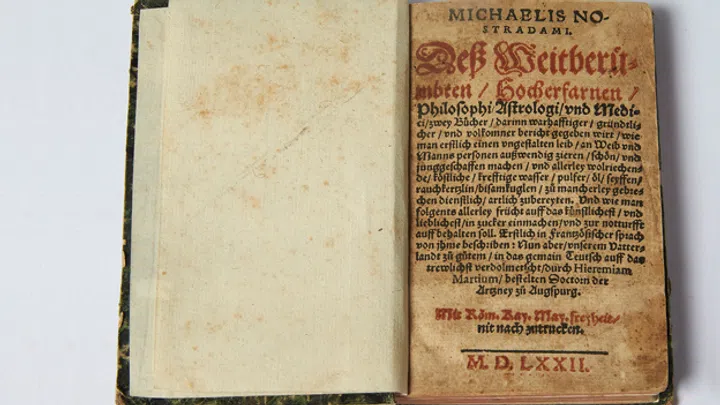 MICHAELIS NO-
STRADAMI.
Deß Weitberü-
mbten / Hocherfarnen /
Philosophi / Astrologi / vnd Medi-
ci / zwey Bücher / darinn warhafftiger / gründtli-
cher / vnd volkomner bericht gegeben wirt / wie
man erstlich einen vngestalten leib / an Weib vnd
Manns personen außwendig zieren / schön / vnd
junggeschaffen machen / vnd allerley wolriechen-
de / köstliche / krefftige wasser / pulfer / öl / seyffen /
rauchkertzlin / bisamkuglen / zů mancherley gebre-
chen dienstlich / artlich zubereyten. Vnd wie man
folgents allerley frücht auff das künstlichest / vnd
lieblichest / in zucker einmachen / vnd zur notturfft
auff behalten soll. Erstlich in Frantzösischer sprach
von jhme beschriben : Nun aber / vnserem Vatter-
landt zů gůtem / in das gemain Teutsch auff das
trewlichst verdolmetscht / durch Hieremiam
Martium / bestelten Doctorn der
Artzney zů Augspurg.
Mit Röm. Kay. May. freyheit /
nit nach zutrucken.
M. D. LXXII.